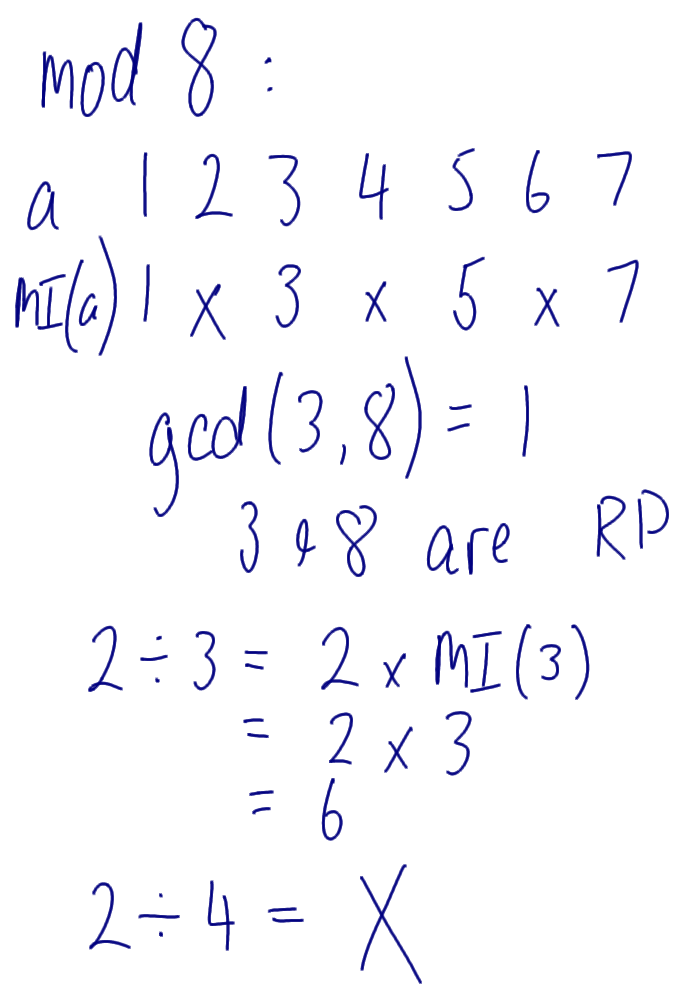 mod 8 :
a 1 2 3 4 5 6 7
MI(a) 1 x 3 x 5 x 7
gcd(3,8) = 1
3 & 8 are RP
2 ÷ 3 = 2 x MI(3)
= 2 x 3
= 6
2 ÷ 4 = X